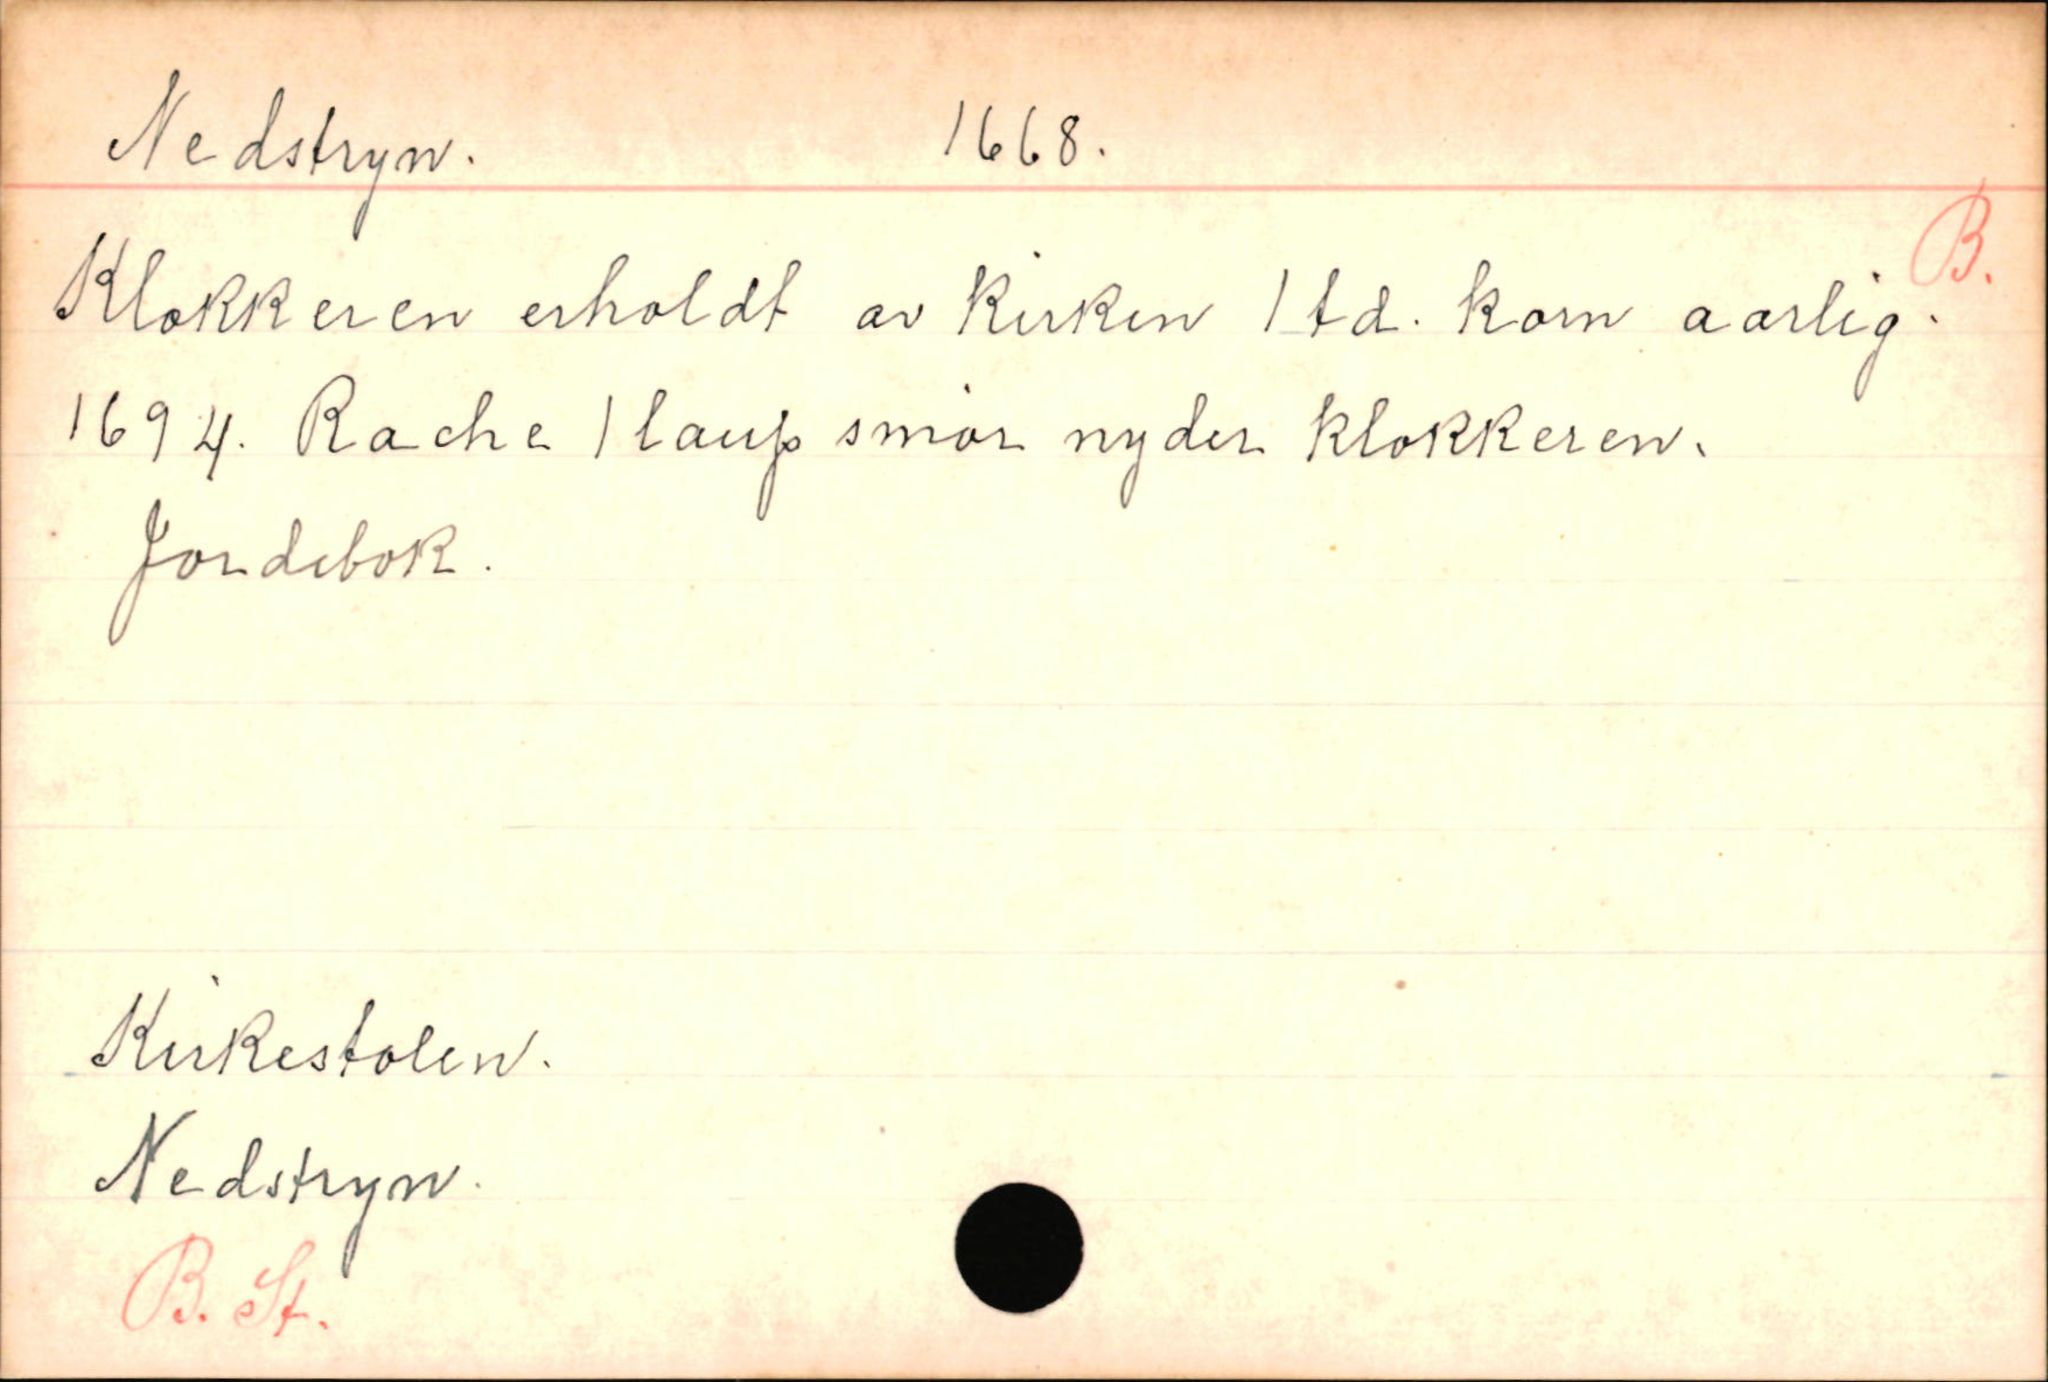 Nedstryn. 1668.
B.
Klokkeren erholdt av kirken 1 td. korn aarlig.
1694. Rache 1 laup smör nyder klokkeren.
Jordebok.
Kirkestolen.
Nedstryn.
B. St.